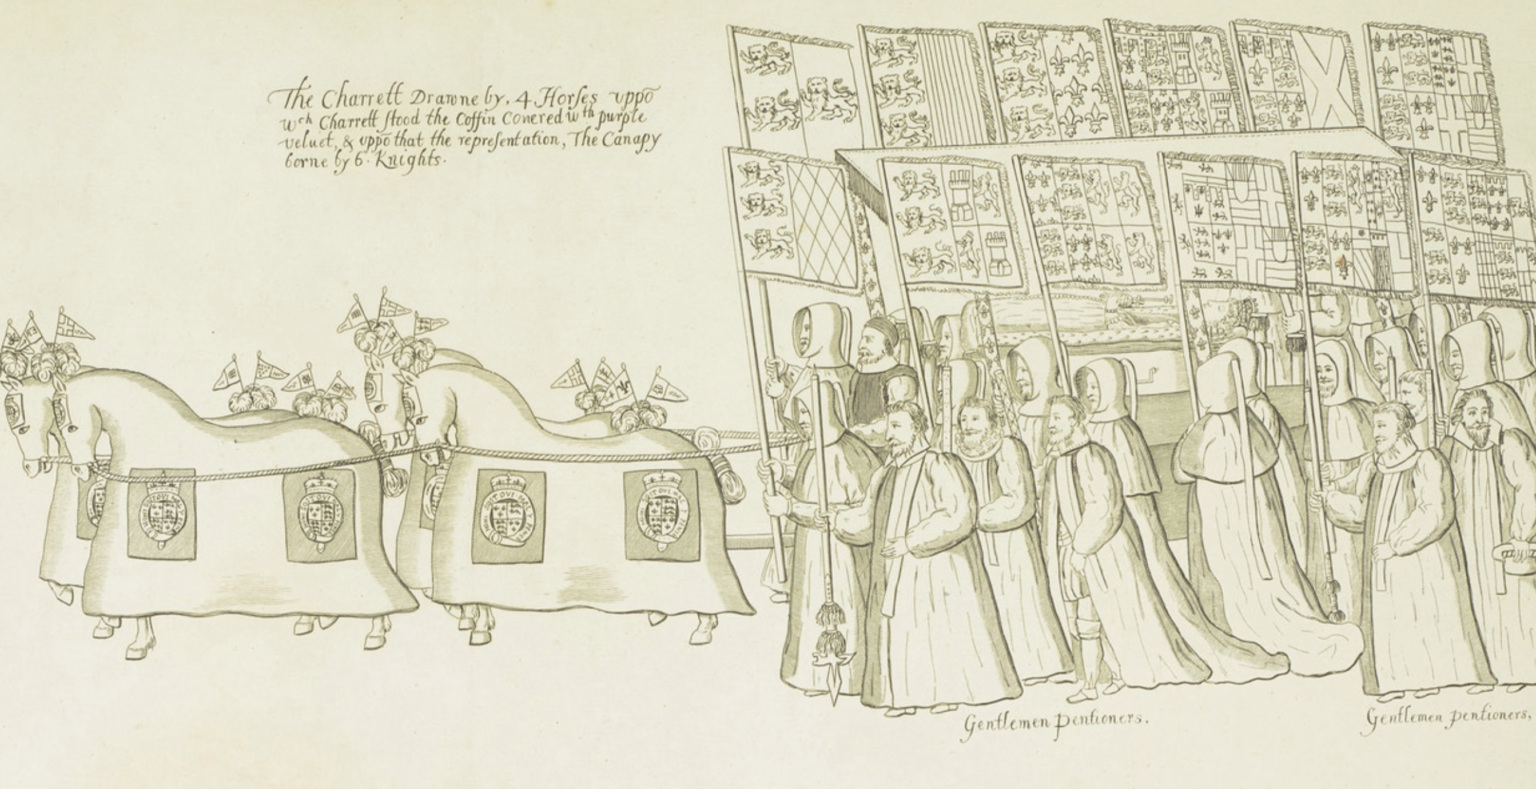 The Charrett Drawne by, 4 Horses uppō
wch Charrett stood the Coffin Couered wth purple
veluet, & uppō that the representation, The Canapy
borne by 6. Knights.
Gentlemen pentioners.
Gentlemen pentioners,